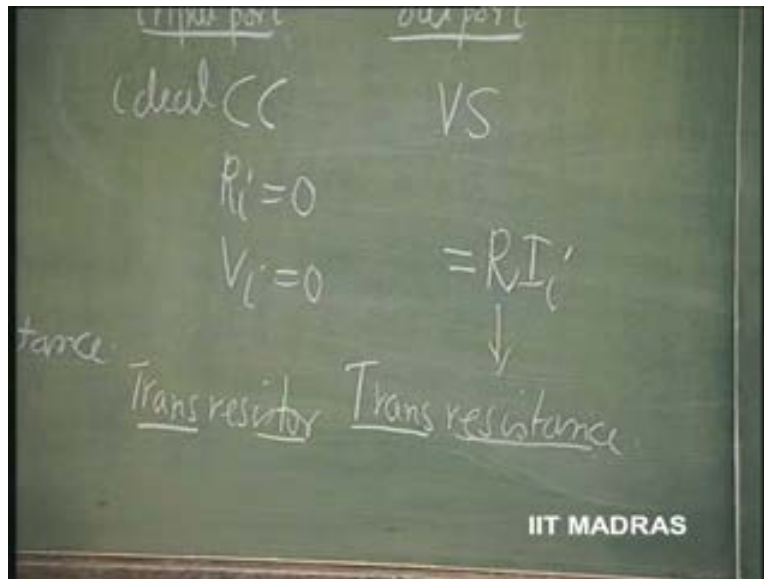 input port output
ideal CC VS
Ri = 0
Vi = 0 = RIi
tance.
Trans resistor Trans resistance.
IIT MADRAS